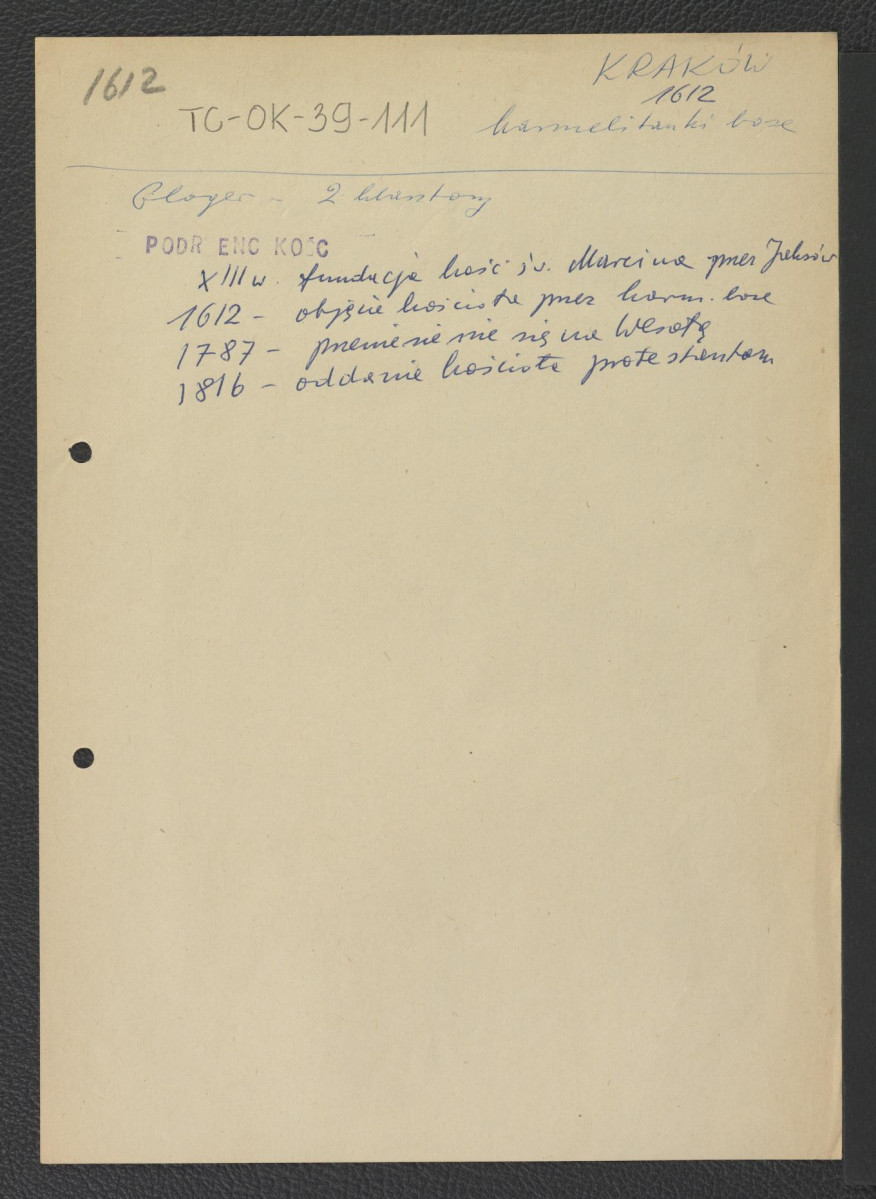 1612
KRAKÓW
1612
TC-OK-39-111
karmelitanki bose
Gloger - 2 klasztory
PODR ENC KOŚC
XIII w. fundacja kość św. Marcina przez Jaksów
1612 - objęcie kościoła przez karm. bose
1787 - przeniesienie się na Wesołą
1816 - oddanie kościoła protestantom